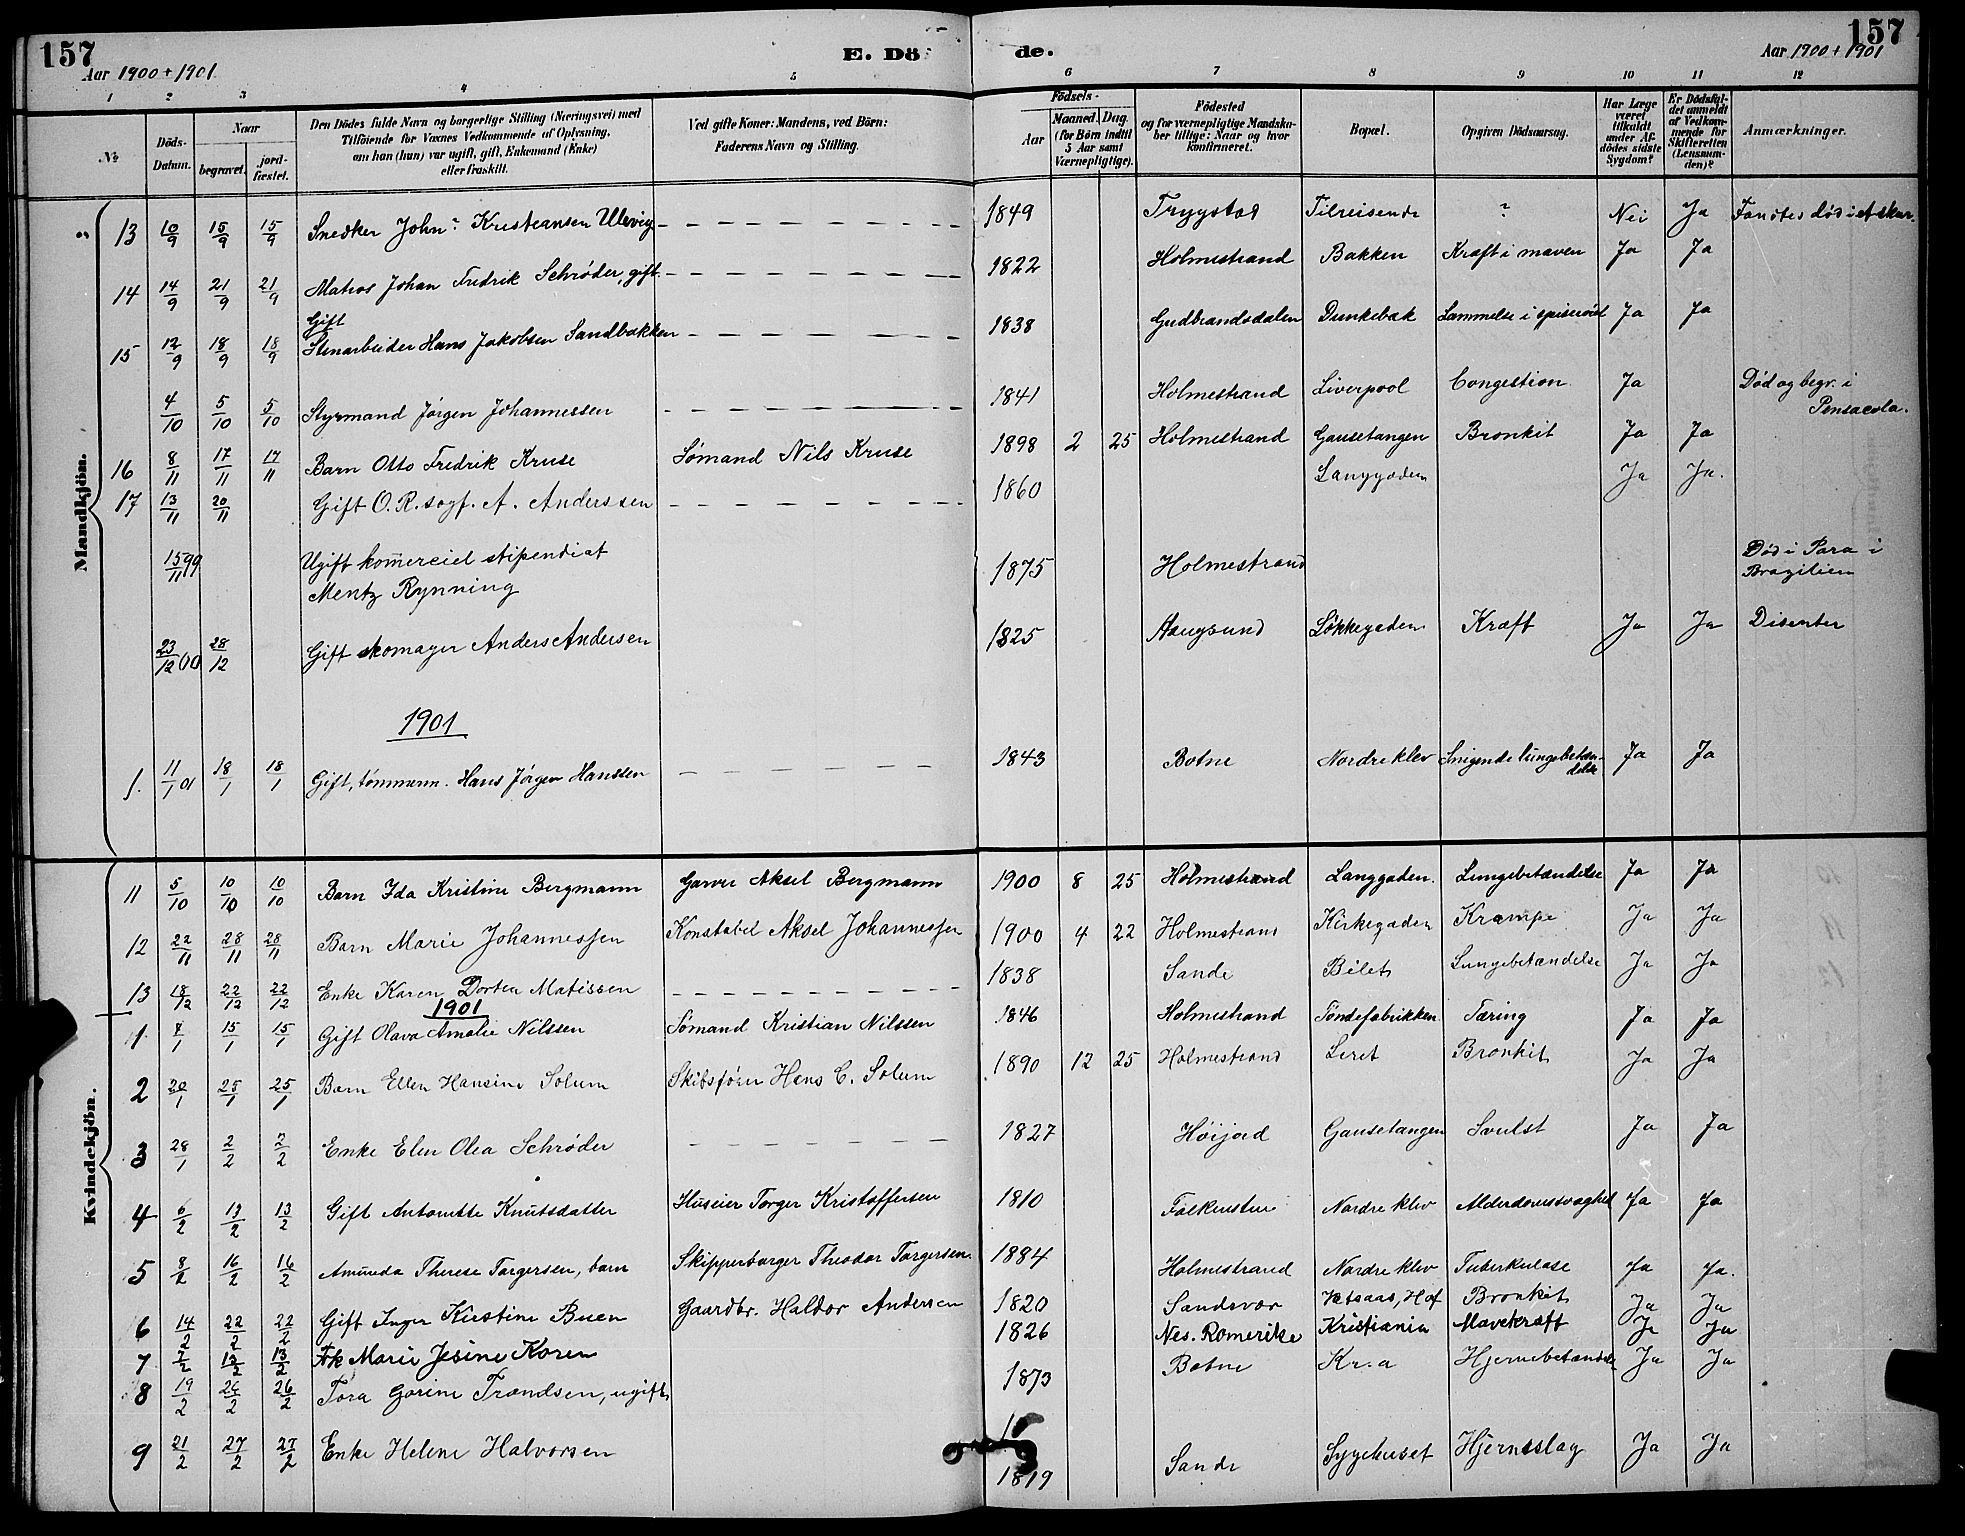 157
Aar 1900 + 1901
E. Dö
de.
157
Aar 1900 + 1901
1 2 3 4 5 6 7 8 9 10 11 12
№
Döds-Datum.
Naar
begravet.
jord-fæstet.
Den Dödes fulde Navn og borgerlige Stilling (Næringsvei) med
Tilföiende for Voxnes Vedkommende af Oplysning,
om han (hun) var ugift, gift, Enkemand (Enke)
eller fraskilt.
Ved gifte Koner: Mandens, ved Börn:
Faderens Navn og Stilling.
Födsels-
Aar
Maaned. Dag.
(for Börn indtil
5 Aar samt
Værnepligtige).
Födested
og for værnepligtige Mandska-
ber tillige: Naar og hvor
konfirmeret.
Bopæl.
Opgiven Dödsaarsag.
Har Læge
været
tilkaldt
under Af-
dödes sidste
Sygdom?
Er Dödsfal-
det anmeldt
af Vedkom-
mende for
Skifteretten
(Lensman-
den)?
Anmærkninger.
Mandkjön.
13 10/9 15/9 15/9 Snedker John? Kristiansen Ulevig – – – 1849 Trygstad Tilreisende ? Nei Ja Fandtes död i et skur.
14 14/9 21/9 21/9 Matros Johan Fredrik Schrøder, gift. – – – 1822 Holmestrand Bakken Kræft i maven Ja Ja
Gift
15 12/9 18/9 18/9 Stenarbeider Hans Jakobsen Sandbakken – – – 1838 Gudbrandsdalen Dunkebak Lammelse i spiserør Ja Ja
4/10 5/10 5/10 Styrmand Jørgen Johannessen – – – 1841 Holmestrand Liverpool Congestion Ja Død og begr. i
Pensacola.
16 8/11 17/11 17/11 Barn Otto Fredrik Kruse Sømand Nils Kruse 1898 2 25 Holmestrand Gausetangen Bronkit Ja Ja
17 13/11 20/11 Gift O. R. sagf. A. Anderssen – – – 1860 Langgaden Ja Ja.
15/11 99 Ugift komerciel stipendiat
Mentz Rynning 1875 Holmestrand Død i Para i
Brazilien
23/12 00 28/12 Gift skomager Anders Andersen 1825 Haugsund Løkkegaden Kræft Ja Ja Disenter
1901
1. 11/1 01 18/1 18/1 Gift, tømmerm. Hans Jørgen Hanssen – – – 1843 Botne Nordre klev Snigende lungebetæn-
delse Ja Ja
Kvindekjön.
11 5/10 10/10 10/10 Barn Ida Kristine Bergmann Garver Aksel Bergmann 1900 8 25 Holmestrand Langgaden. Lungebetændelse Ja Ja
12 22/11 28/11 28/11 Barn Marie Johannessen Konstabel Aksel Johannessen 1900 4 22 Holmestrand Kirkegaden Krampe Ja Ja
13 18/12 22/12 22/12 Enke Karen Dortea Matissen – – – 1838 Sande Lungebetændelse Ja Ja
1901
1. 7/1 15/1 15/1 Gift Olava Amalie Nilssen Sømand Kristian Nilssen 1846 Holmestrand Tøndefabrikken Tæring Ja Ja
2 20/1 25/1 25/1 Barn Ellen Hansine Solum Skibsfører Hans C. Solum 1890 12 25 Holmestrand Leret Bronkit Ja Ja
3 28/1 2/2 2/2 Enke Elen Olea Schrøder – – – 1827 Høijord Gausetangen Svulst Ja Ja
4 6/2 13/2 13/2 Gift Antonette Knutsdatter Huseier Torger Kristoffersen 1810 Falkensten Nordre klev Alderdomssvaghed Ja Ja
5 8/2 16/2 16/2 Amunda Therese Torgersen, barn Skipperborger Theodor Torgersen 1884 Holmestrand Nordre klev Tuberkulose Ja Ja.
6 14/2 22/2 22/2 Gift Inger Kirstine Buen Gaardbr. Haldor Andersen 1820 Sandsvær Hof Bronkit Ja Ja
7 7/2 13/2 13/2 Frk Marie Jesine Koren 1826 Nes. Romerike Kristiania Mavekræft Ja Ja
8 19/2 26/2 26/2 Tora Gorine Trondsen, ugift 1873 Botne Kr.a Hjernebetændelse Ja Ja
9 21/2 27/2 27/2 Enke Helene Halvorsen 1819 Sande Sygehuset Hjerneslag Ja Ja